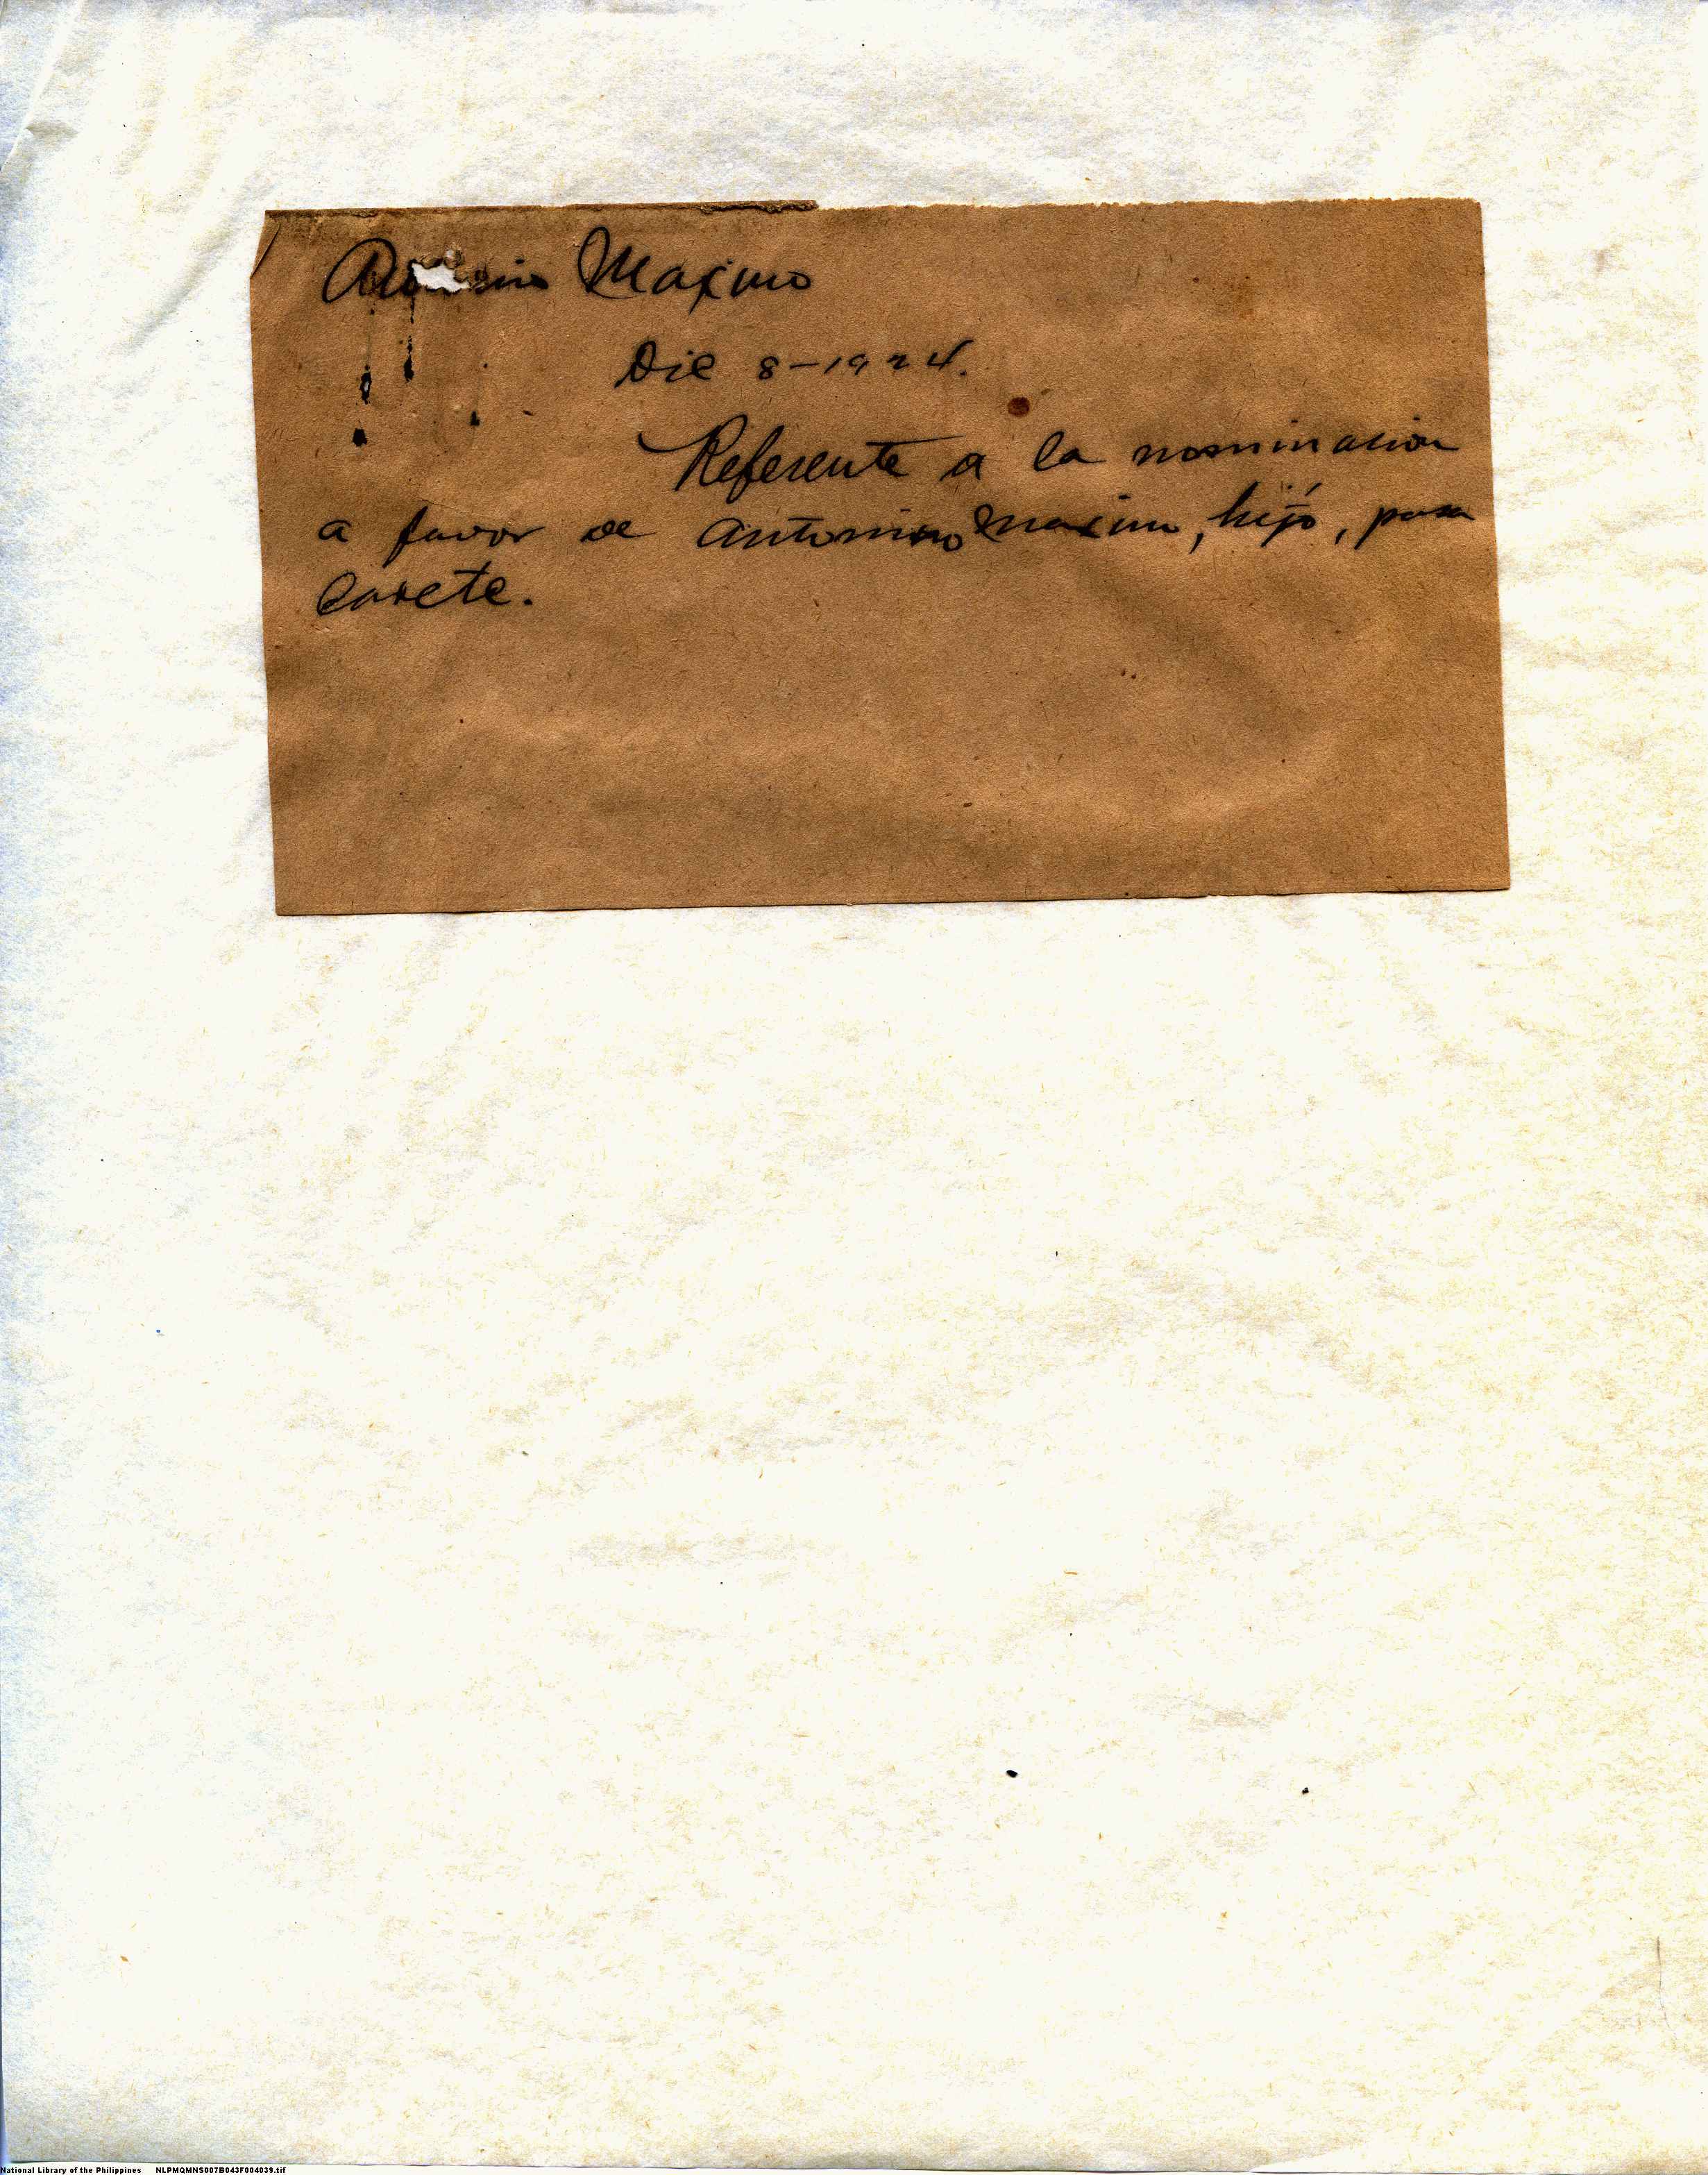 Maximo
Dic 8-1924.
Referente a la nominacion
a favor de Antonino Maximo, hijo, para
Cadete.
National Library of the Philippines NLPMQMNS007B043F004039.tif